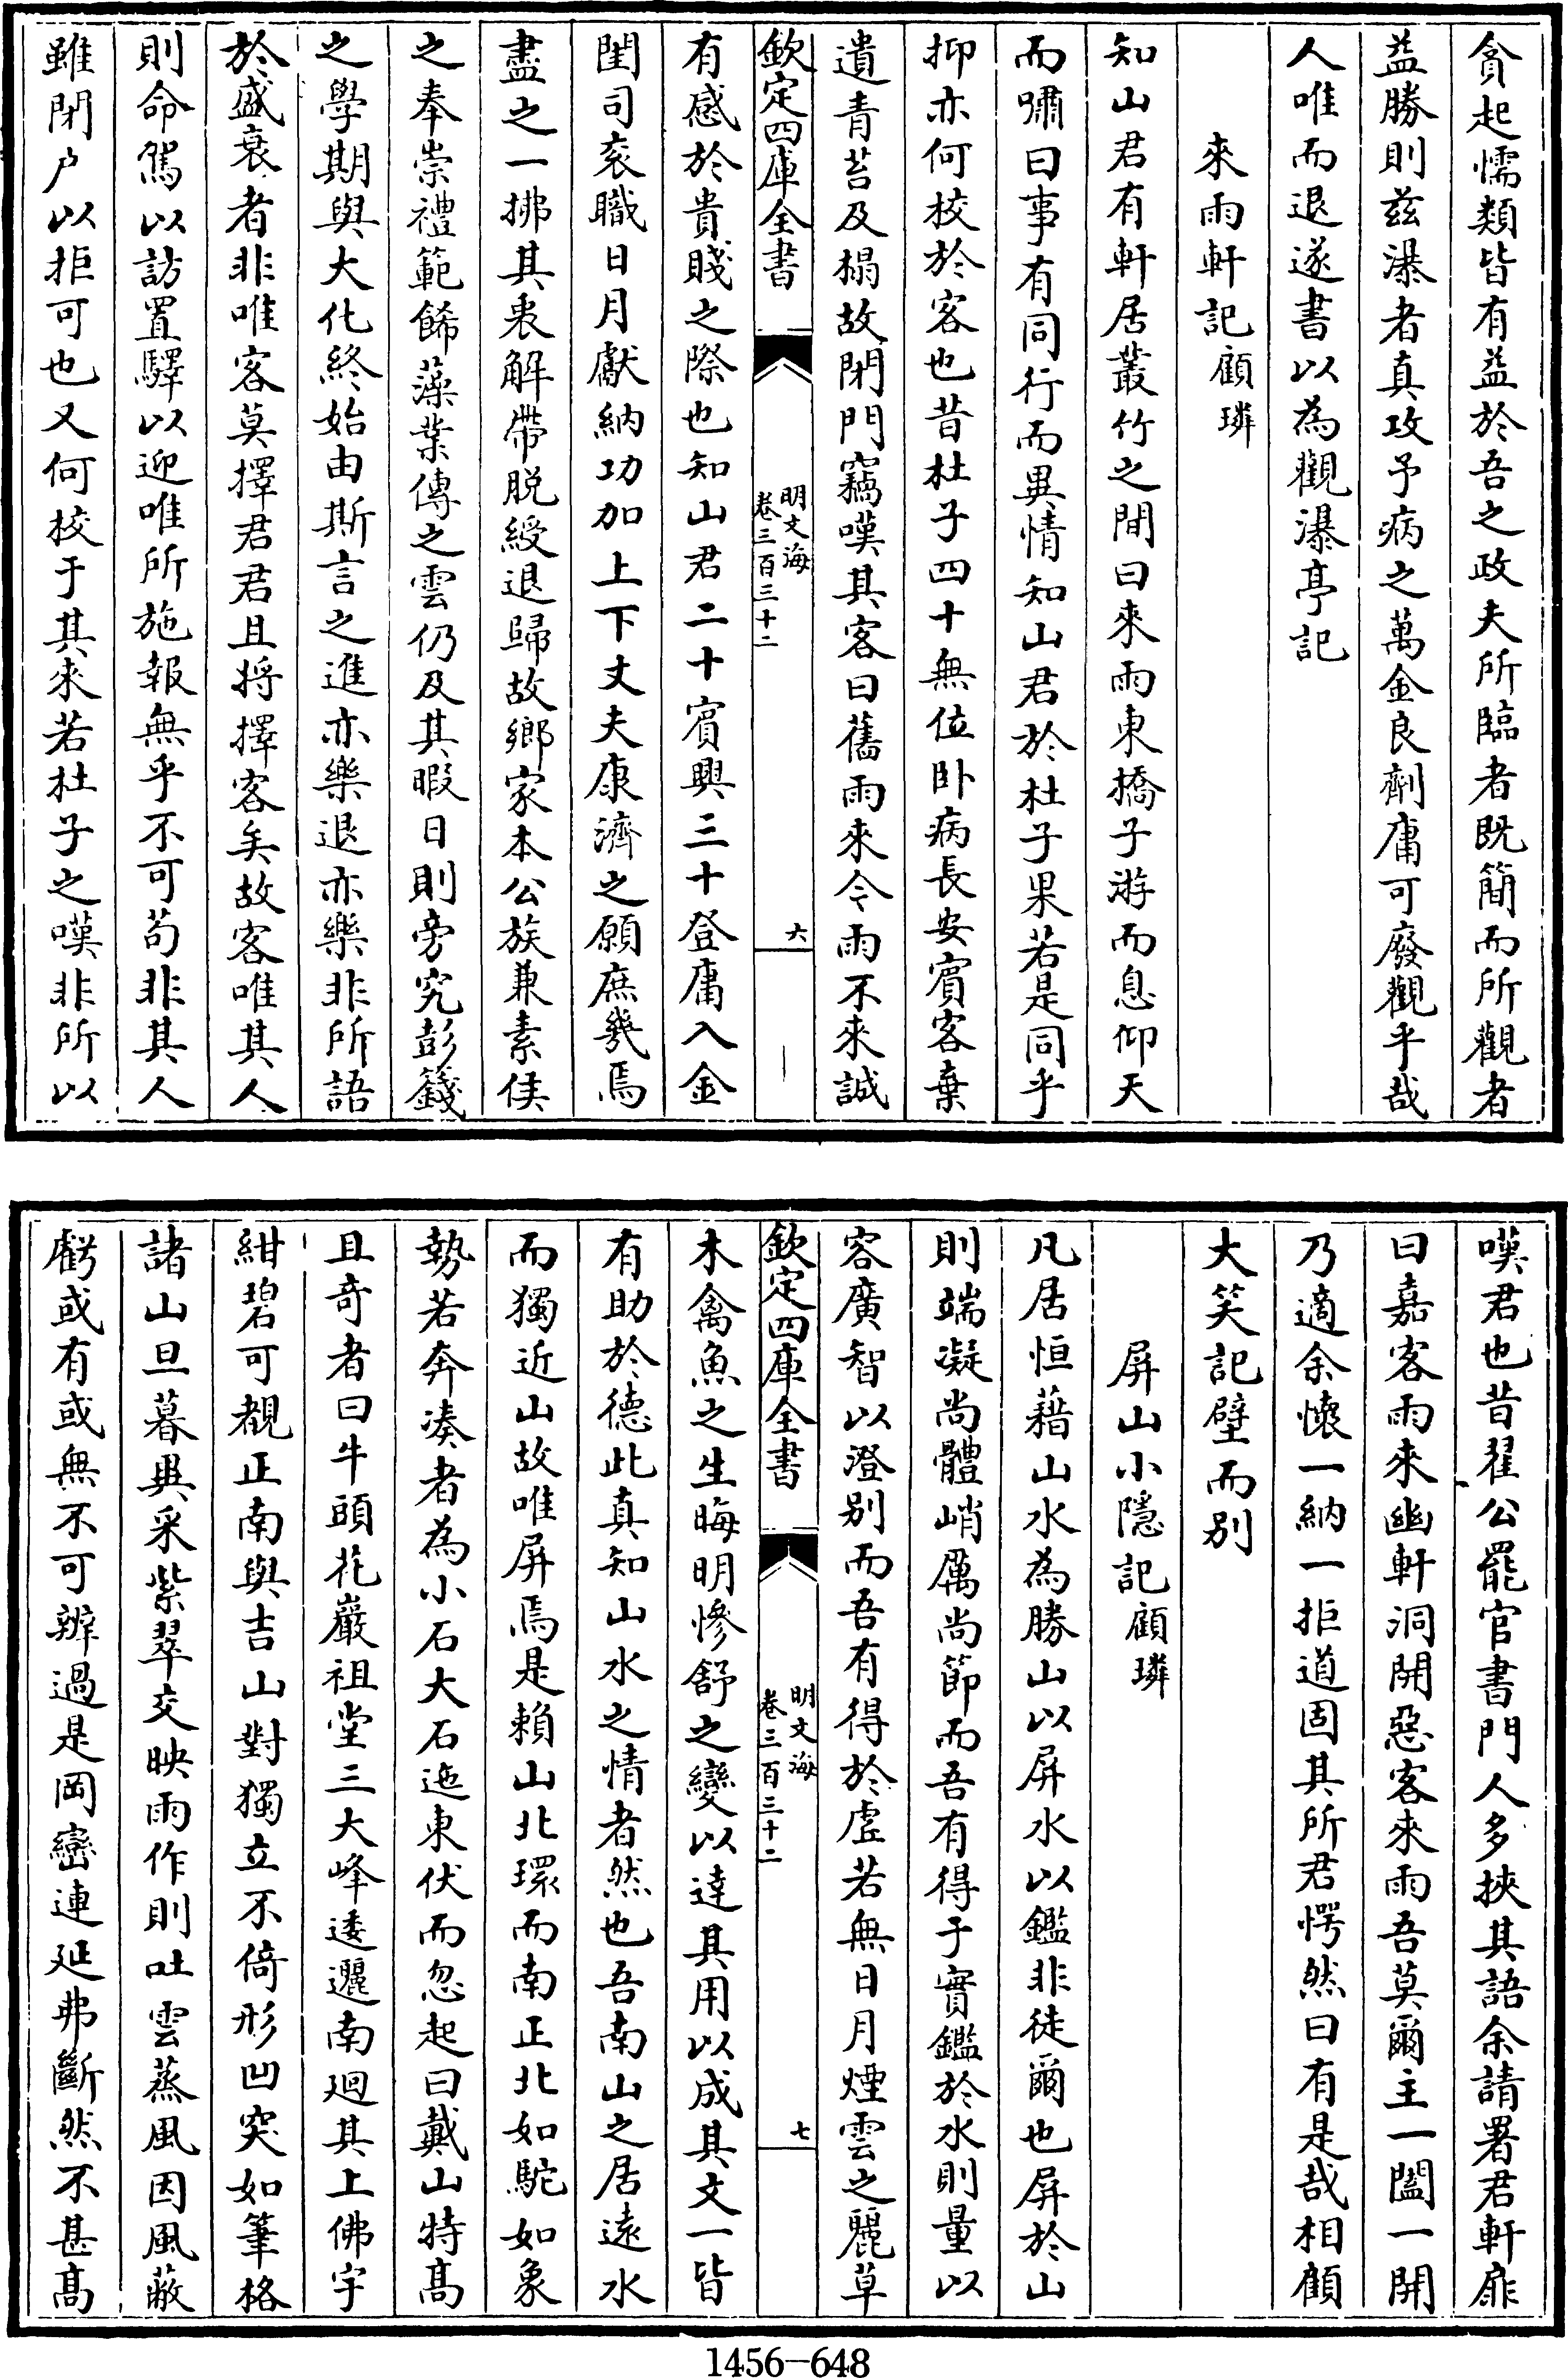 貪起懦類皆有益於吾之政夫所臨者既簡而所觀者
益勝則兹瀑者真攻予病之萬金良劑庸可廢觀乎哉
人唯而退遂書以為觀瀑亭記
來雨軒記顧璘
知山君有軒居叢竹之間曰來雨東橋子游而息仰天
而嘯曰事有同行而異情知山君於杜子果若是同乎
抑亦何校於客也昔杜子四十無位卧病長安賓客棄
遺青苔及榻故閉門竊嘆其客曰舊雨來今雨不來誠
欽定四庫全書
明文海
卷三百三十二
六
有感於貴賤之際也知山君二十賓興三十登庸入金
閨司衮職日月獻納功加上下丈夫康濟之願庶幾焉
盡之一拂其衷解帶脱綬退歸故鄉家本公族兼素侯
之奉崇禮範餙藻業傳之雲仍及其暇日則旁究彭籛
之學期與大化終始由斯言之進亦樂退亦樂非所語
於盛衰者非唯客莫擇君君且將擇客矣故客唯其人
則命駕以訪置驛以迎唯所施報無乎不可苟非其人
雖閉户以拒可也又何校于其來若杜子之嘆非所以
嘆君也昔翟公罷官書門人多挾其語余請署君軒扉
曰嘉客雨來幽軒洞開惡客來雨吾莫爾主一闔一開
乃適余懷一納一拒道固其所君愕然曰有是哉相顧
大笑記壁而别
屏山小隱記顧璘
凡居恒藉山水為勝山以屏水以鑑非徒爾也屏於山
則端凝尚體峭厲尚節而吾有得于實鑑於水則量以
容廣智以澄别而吾有得於虛若無日月煙雲之麗草
欽定四庫全書
明文海
卷三百三十二
七
木禽魚之生晦明慘舒之變以達其用以成其文一皆
有助於德此真知山水之情者然也吾南山之居遠水
而獨近山故唯屏焉是賴山北環而南正北如駝如象
勢若奔湊者為小石大石迤東伏而忽起曰戴山特髙
且奇者曰牛頭花巖祖堂三大峰逶邐南廻其上佛宇
紺碧可覩正南與吉山對獨立不倚形凹突如筆格
諸山旦暮異采紫翠交映雨作則吐雲蒸風因風蔽
虧或有或無不可辨過是岡巒連延弗斷然不甚髙
1456—648